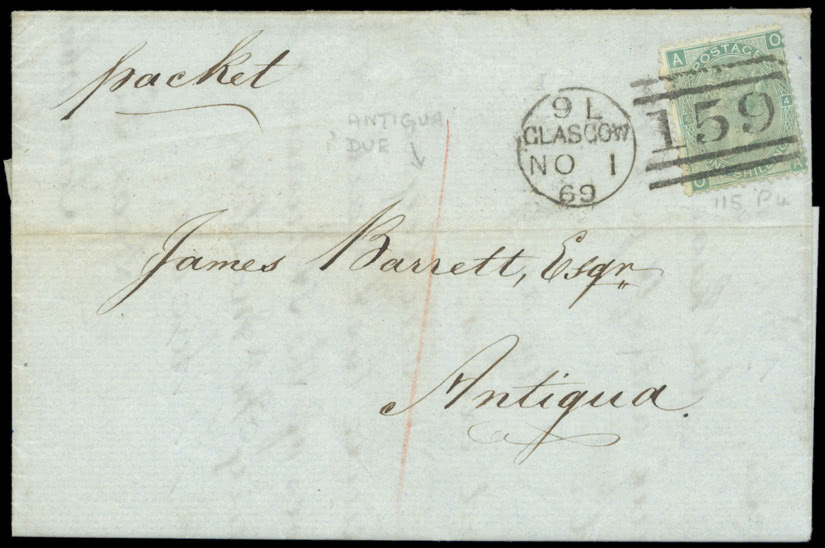 packet
ANTIGUA
? DUE
9 L
GLASGOW
NO 1
69
159
A O
POSTAGE
4
SHILLING
O
115 Pu
James Barrett, Esqr
Antigua.